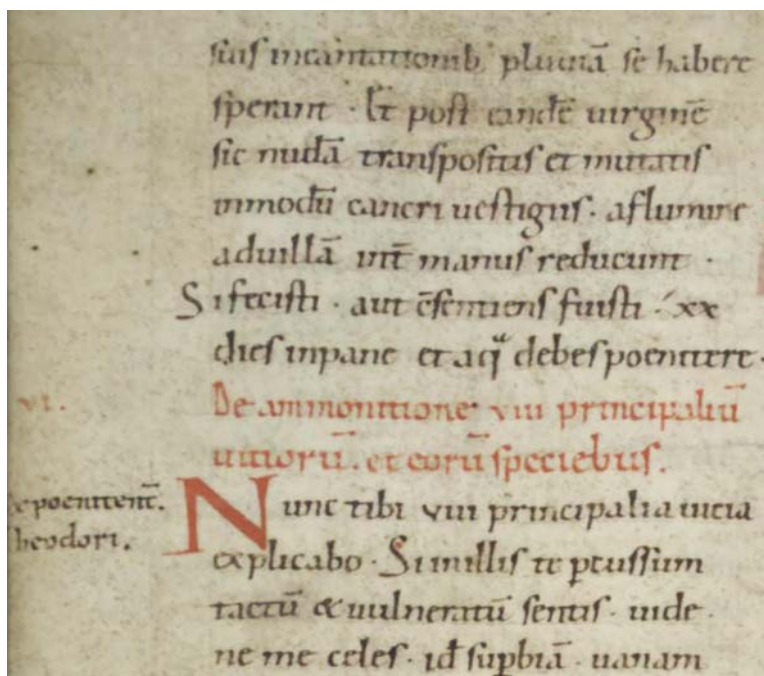 suis incantationib; pluuiā se habere
sperant · Et post eandē uirginē
sic nudā transpositis et mutatis
inmodū cancri uestigiis · aflumine
aduillā int̄ manus reducunt ·
Si fecisti · aut c̄sentiens fuisti · xx
dies inpane et aq̄ debes poenitere ·
vi.
De ammonitione viii principaliū
uitiorū. et eorū speciebus.
Ex poenitent̄.
Theodori.
Nunc tibi viii principalia uicia
explicabo · Si in illis te p̄cussum
tactū & uulneratū sentis · uide
ne me celes · id̄ sup̄biā · uanam